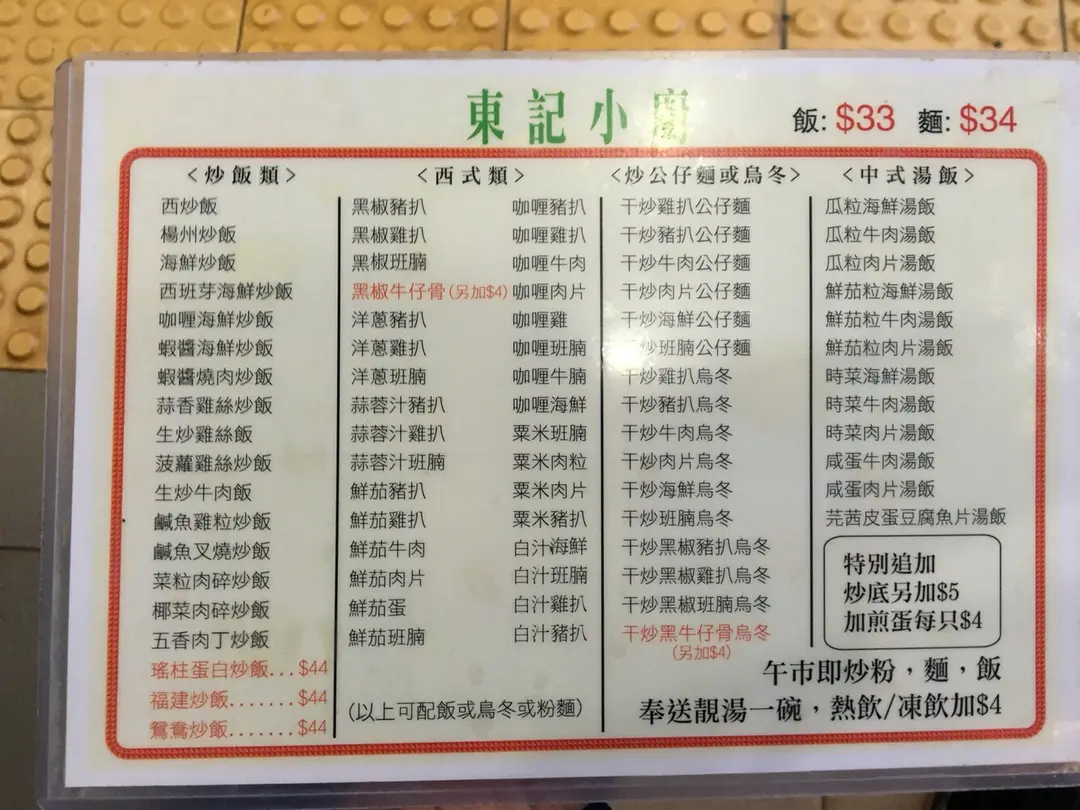 東記小廚
飯: $33 麵: $34
<炒飯類>
西炒飯
楊州炒飯
海鮮炒飯
西班芽海鮮炒飯
咖喱海鮮炒飯
蝦醬海鮮炒飯
蝦醬燒肉炒飯
蒜香雞絲炒飯
生炒雞絲飯
菠蘿雞絲炒飯
生炒牛肉飯
鹹魚雞粒炒飯
鹹魚叉燒炒飯
菜粒肉碎炒飯
椰菜肉碎炒飯
五香肉丁炒飯
瑤柱蛋白炒飯...$44
福建炒飯.......$44
鴛鴦炒飯.......$44
<西式類>
黑椒豬扒
黑椒雞扒
黑椒班腩
黑椒牛仔骨(另加$4)
洋蔥豬扒
洋蔥雞扒
洋蔥班腩
蒜蓉汁豬扒
蒜蓉汁雞扒
蒜蓉汁班腩
鮮茄豬扒
鮮茄雞扒
鮮茄牛肉
鮮茄肉片
鮮茄蛋
鮮茄班腩
咖喱豬扒
咖喱雞扒
咖喱牛肉
咖喱肉片
咖喱雞
咖喱班腩
咖喱牛腩
咖喱海鮮
粟米班腩
粟米肉粒
粟米肉片
粟米豬扒
白汁海鮮
白汁班腩
白汁雞扒
白汁豬扒
(以上可配飯或烏冬或粉麵)
<炒公仔麵或烏冬>
干炒雞扒公仔麵
干炒豬扒公仔麵
干炒牛肉公仔麵
干炒肉片公仔麵
干炒海鮮公仔麵
炒班腩公仔麵
干炒雞扒烏冬
干炒豬扒烏冬
干炒牛肉烏冬
干炒肉片烏冬
干炒海鮮烏冬
干炒班腩烏冬
干炒黑椒豬扒烏冬
干炒黑椒雞扒烏冬
干炒黑椒班腩烏冬
干炒黑牛仔骨烏冬
(另加$4)
<中式湯飯>
瓜粒海鮮湯飯
瓜粒牛肉湯飯
瓜粒肉片湯飯
鮮茄粒海鮮湯飯
鮮茄粒牛肉湯飯
鮮茄粒肉片湯飯
時菜海鮮湯飯
時菜牛肉湯飯
時菜肉片湯飯
咸蛋牛肉湯飯
咸蛋肉片湯飯
芫茜皮蛋豆腐魚片湯飯
特別追加
炒底另加$5
加煎蛋每只$4
午市即炒粉，麵，飯
奉送靚湯一碗，熱飲/凍飲加$4